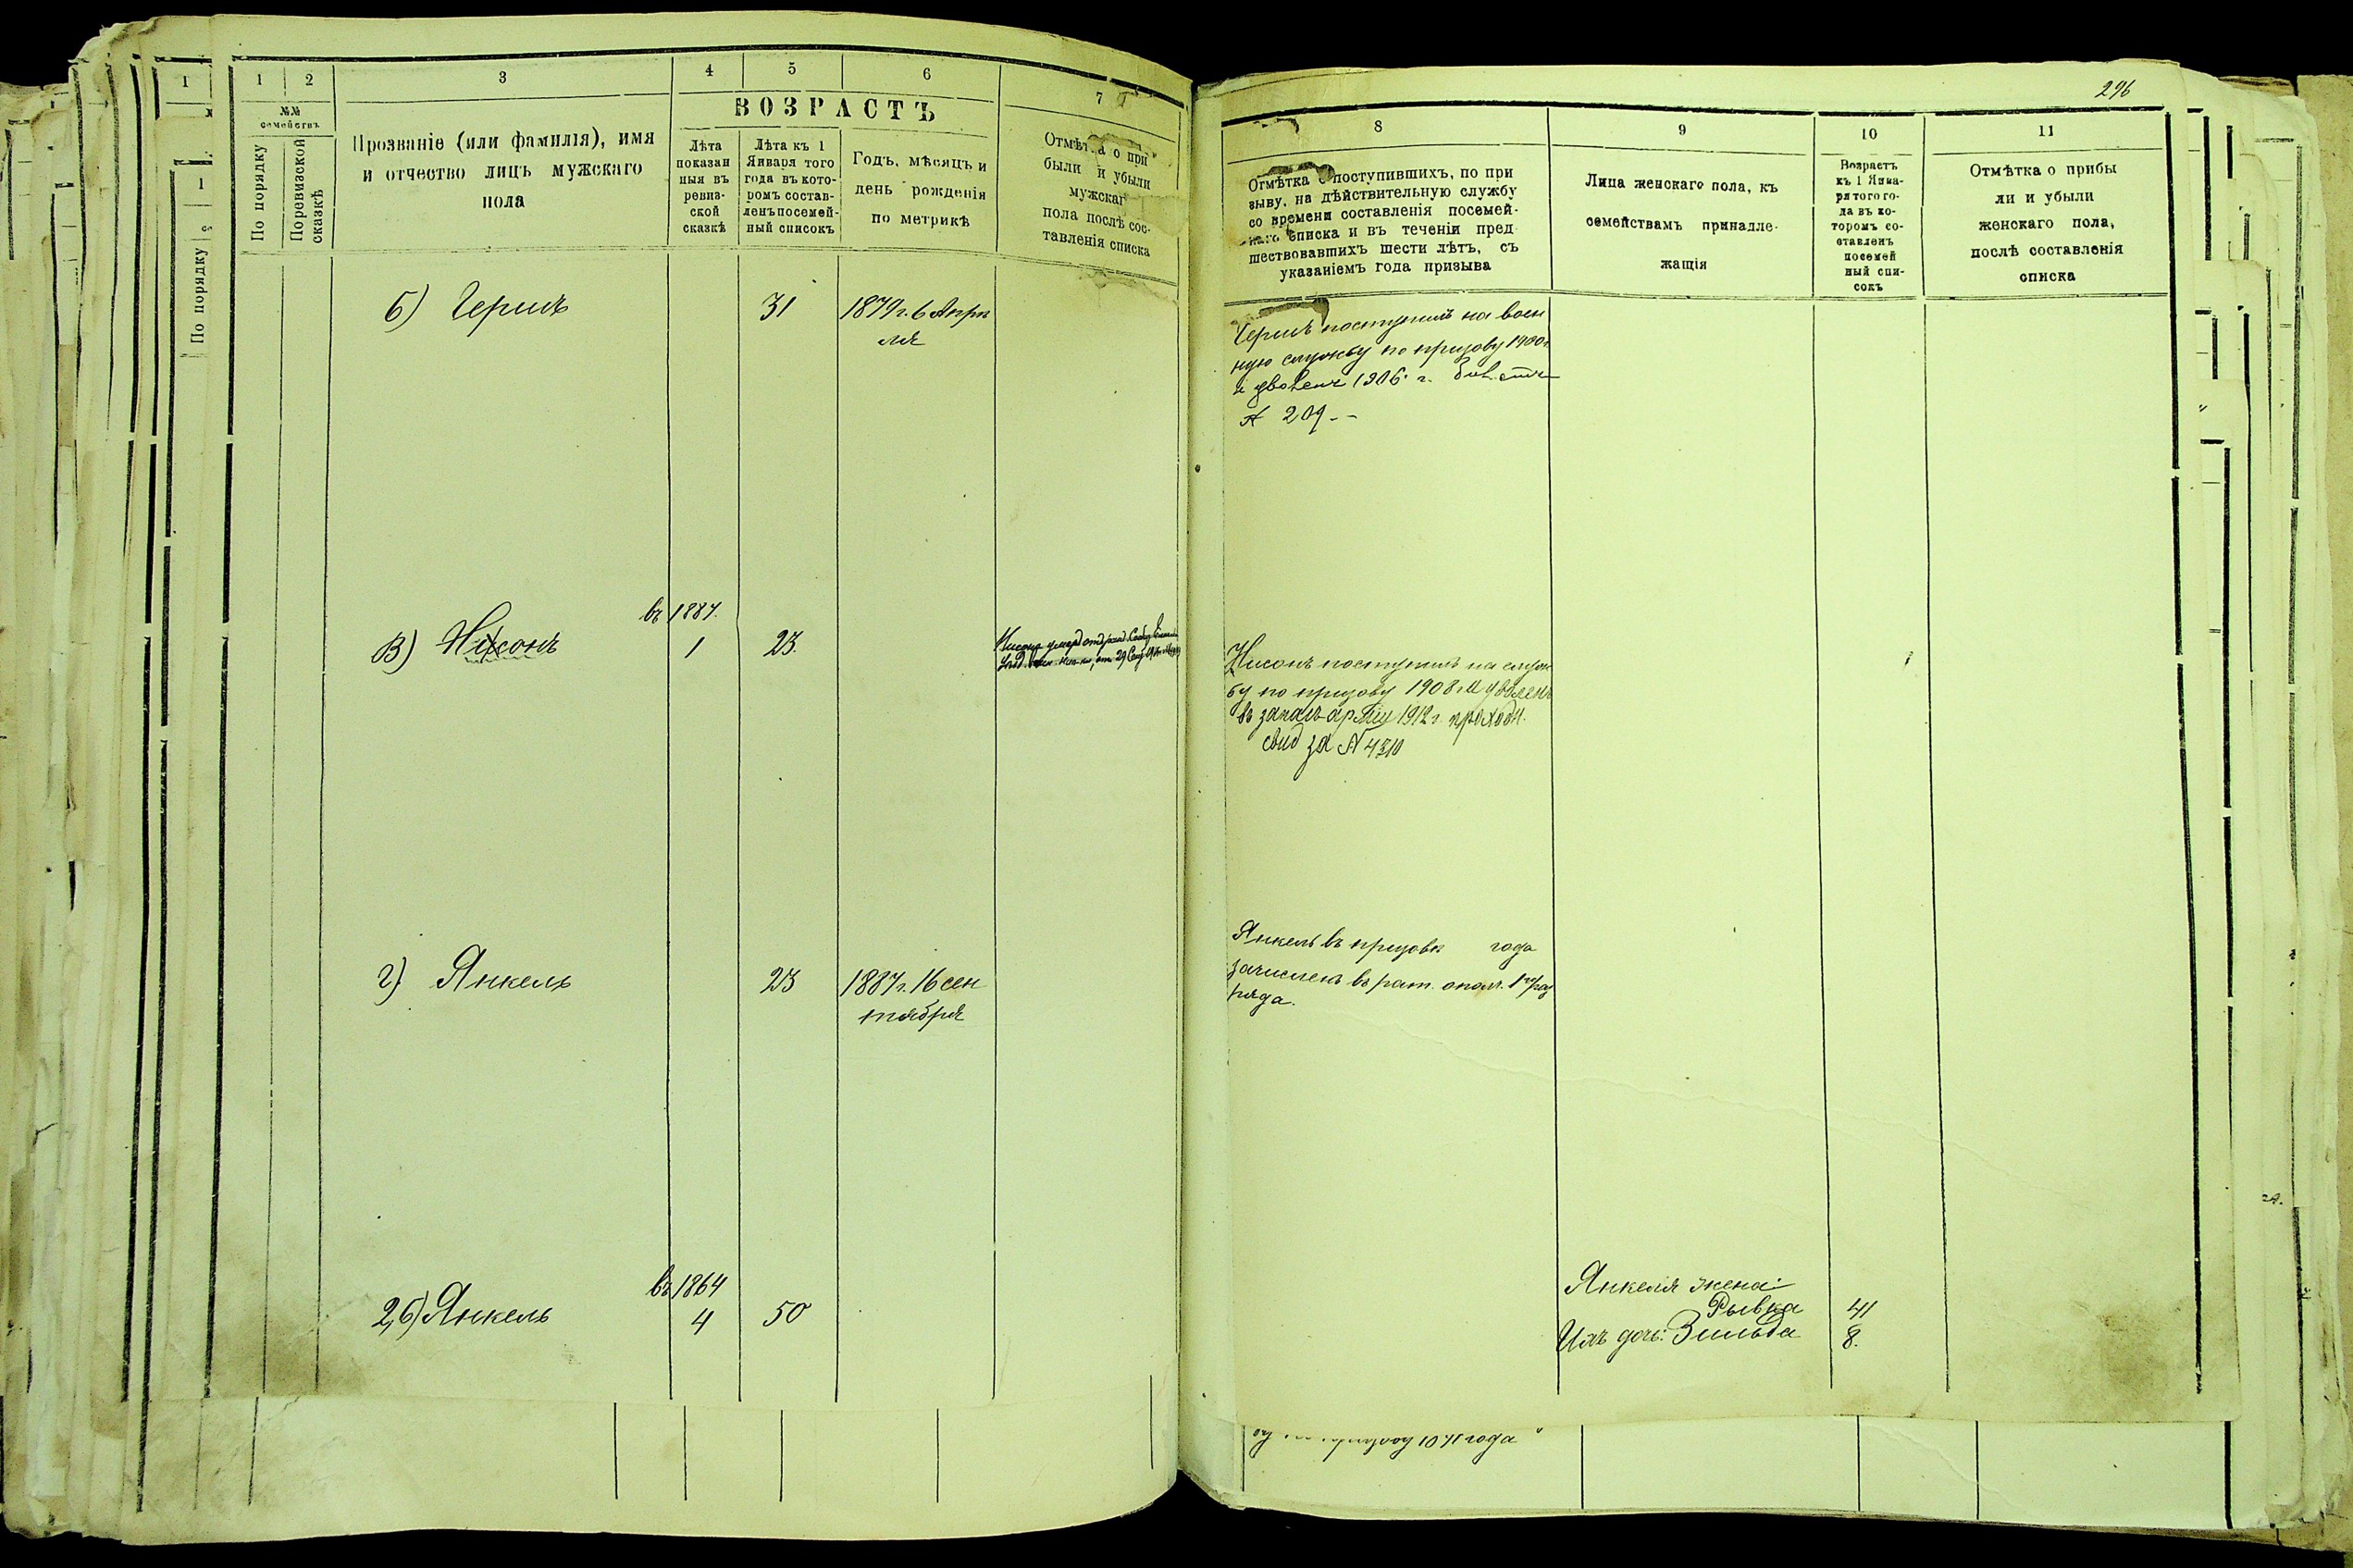 1
По порядку
1
1
2
3
4
5
6
7
№№
семействъ
По порядку
По ревизской
сказкѣ
Прозваніе (или фамилія), имя
и отчество лицъ мужскаго
пола
ВОЗРАСТЪ
Лѣта
показан
ныя въ
ревиз-
ской
сказкѣ
Лѣта къ 1
Января того
года въ кото-
ромъ состав-
ленъ посемей-
ный списокъ
Годъ, мѣсяцъ и
день рожденія
по метрикѣ
Отмѣтка о при
были и убыли
мужскаг
пола послѣ сос-
тавленія списка
б) Гершъ
31
1879 г. 6 Апрѣ
ля
въ 1887.
в) Нисонъ
1
23.
Нисонъ умеръ
29
г) Янкель
23
1887 г. 16 сен
тября
въ 1864
2,б) Янкель
4
50
296
8
9
10
11
Отмѣтка о поступившихъ, по при
зыву, на дѣйствительную службу
со времени составленія посемей-
наго списка и въ теченіи пред
шествовавшихъ шести лѣтъ, съ
указаніемъ года призыва
Лица женскаго пола, къ
семействамъ принадле-
жащія
Возрастъ
къ 1 Янва-
ря того го-
да въ ко-
торомъ со-
ставленъ
посемей
ный спи-
сокъ
Отмѣтка о прибы
ли и убыли
женскаго пола,
послѣ составленія
списка
Гершъ поступилъ на воен
ную службу по призыву 1900 г.
и уволенъ 1906 г.
№ 209 --
Нисонъ поступилъ на служ
бу по призыву 1908 г. и уволенъ
въ запасъ арміи 1912 г. проходн.
свид за № 4310
Янкель въ призывъ года
зачисленъ въ рат. опол. 1го раз
ряда.
Янкеля жена:
Рывка 41
Ихъ дочь: Зильда 8.
призыву года